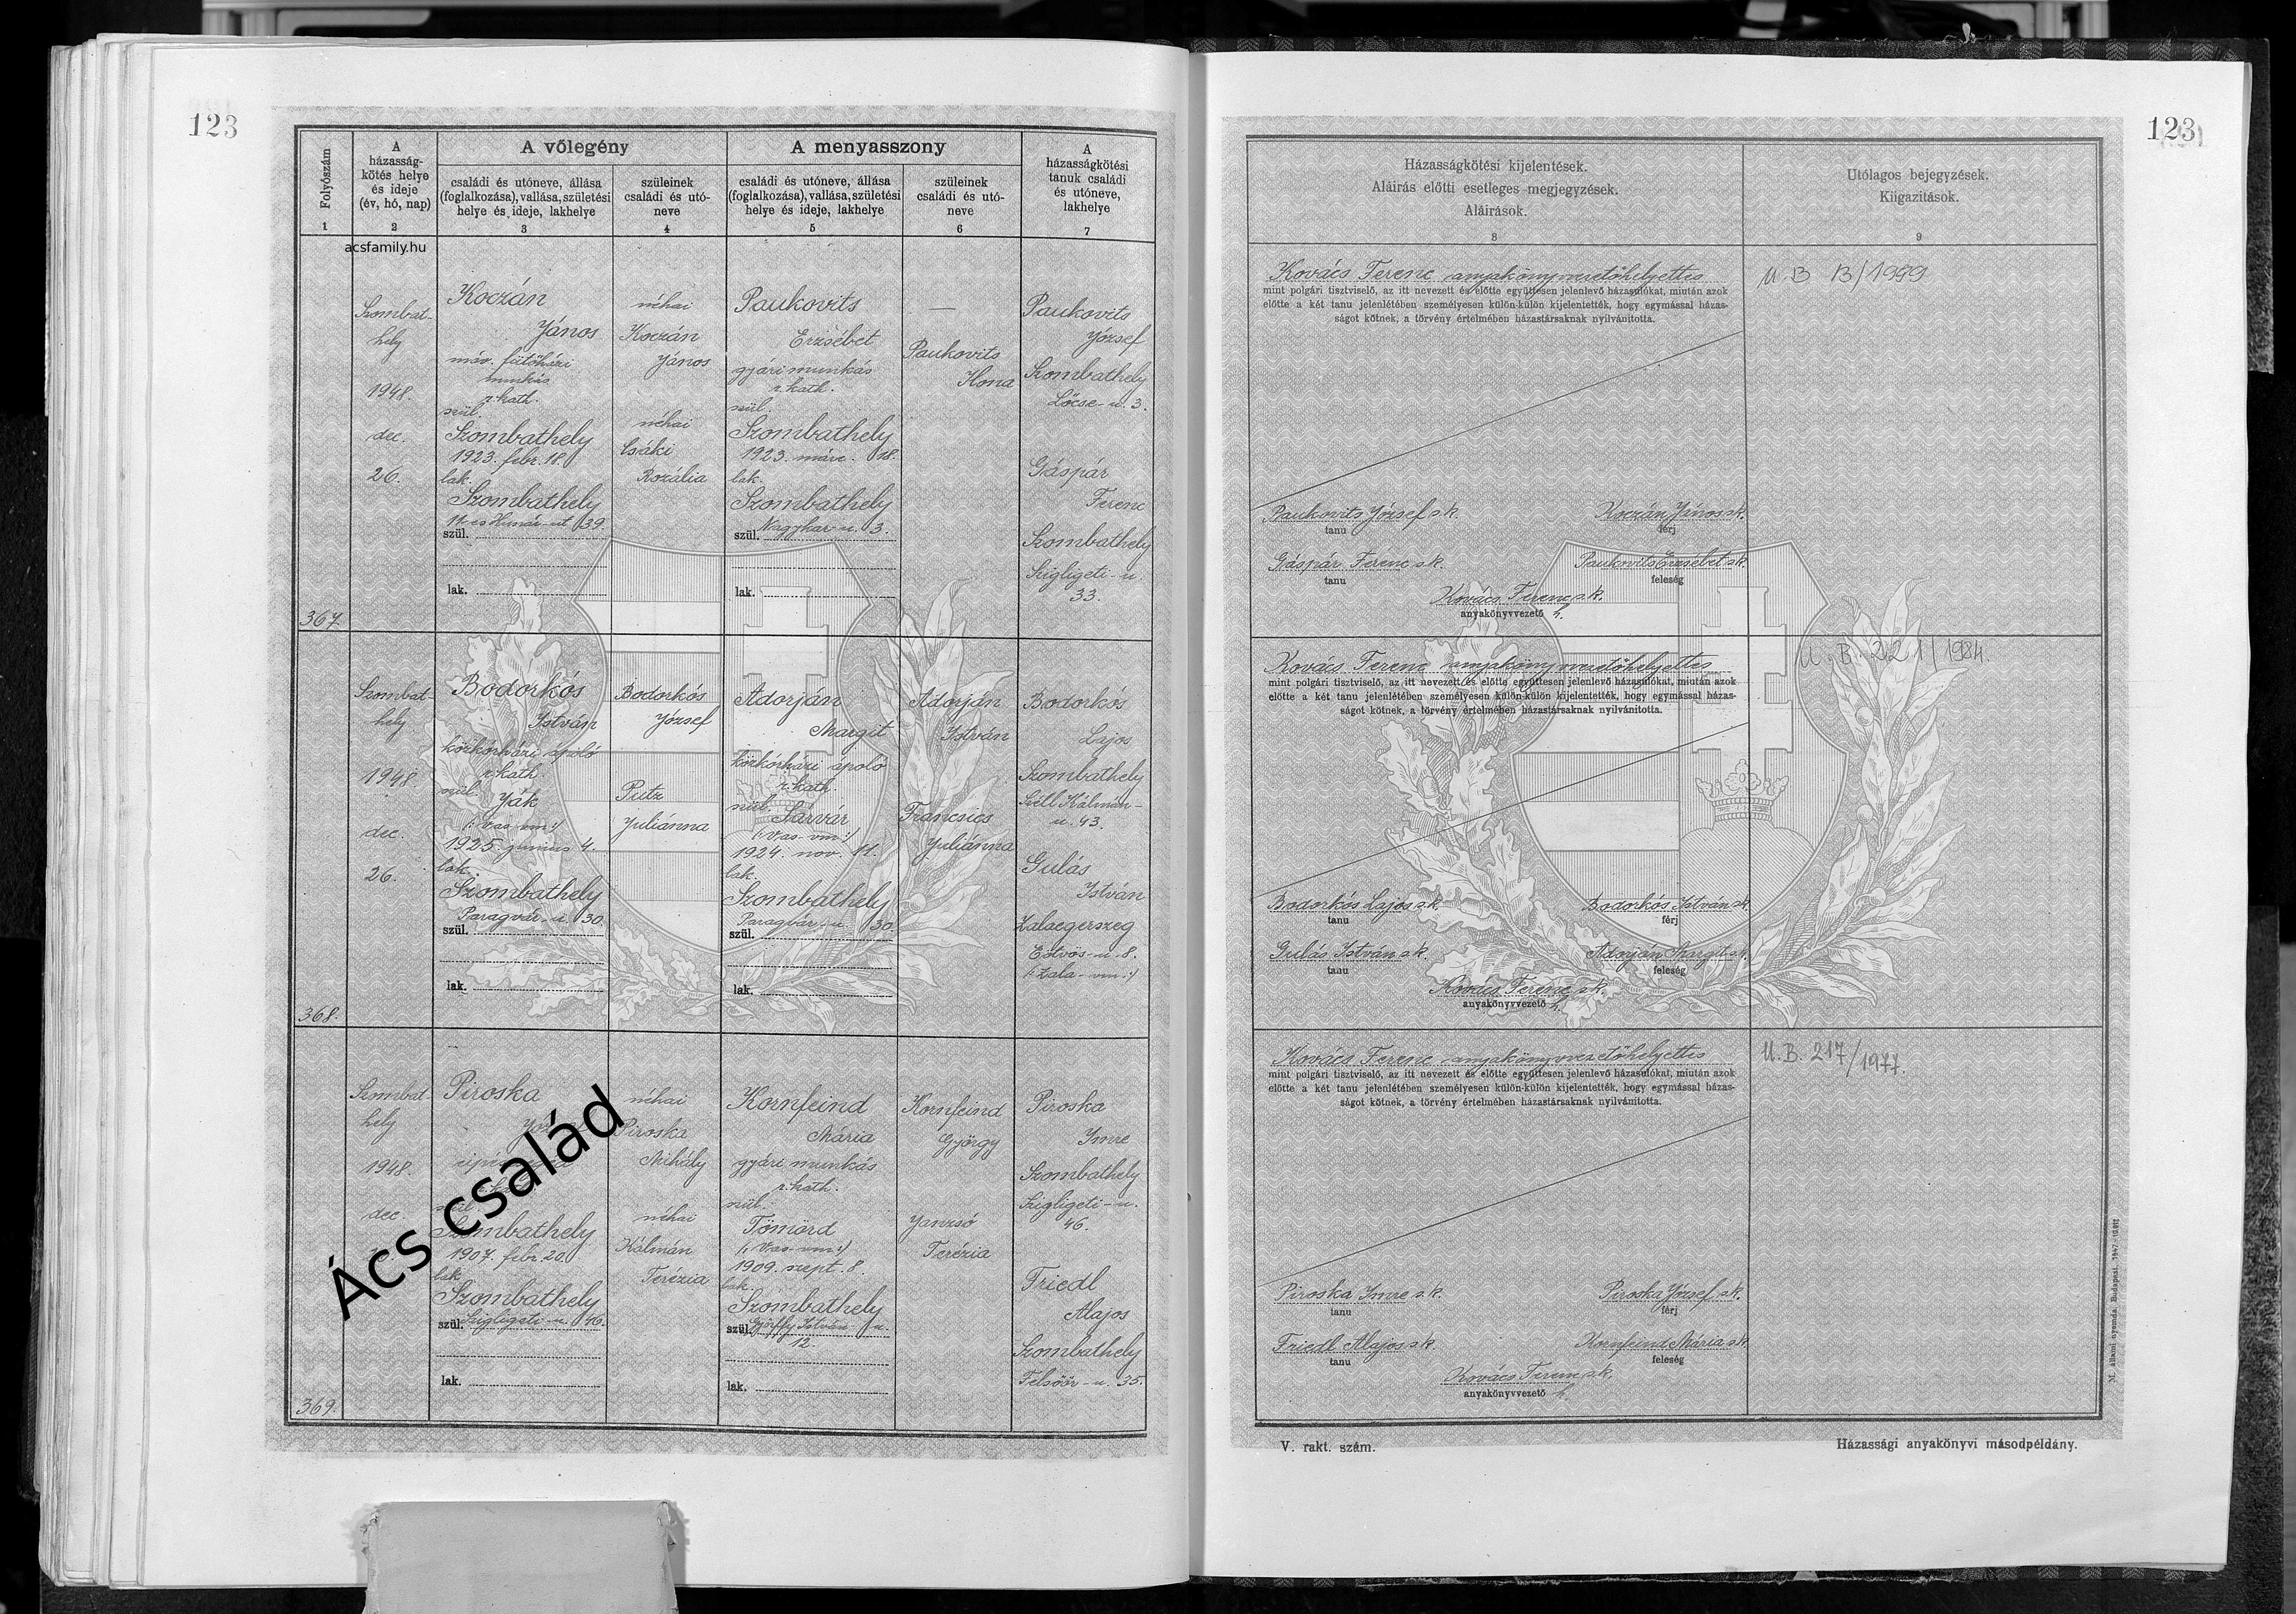 123
A
Folyószám
házasság-
kötés helye
és ideje
(év, hó, nap)
A vőlegény
családi és utóneve, állása
(foglalkozása), vallása, születési
helye és ideje, lakhelye
szüleinek
családi és utó-
neve
A menyasszony
családi és utóneve, állása
(foglalkozása), vallása, születési
helye és ideje, lakhelye
szüleinek
családi és utó-
neve
A
házasságkötési
tanuk családi
és utóneve,
lakhelye
1 2 3 4 5 6 7
acsfamily.hu
367.
Szombat-
hely
1948.
dec.
26.
Koczán
János
máv. fűtőházi
munkás
r. kath.
szül.
Szombathely
1923. febr. 18.
lak.
Szombathely
39.
szül.
lak.
néhai
Koczán
János
néhai
Csáki
Rozália
Paukovits
Erzsébet
gyári munkás
r. kath.
szül.
Szombathely
1923. márc. 18.
lak.
Szombathely
Nagyhar-u. 3.
szül.
lak.
—
Paukovits
Ilona
Paukovits
József
Szombathely
Lőcse-u. 3.
Gáspár
Ferenc
Szombathely
Szigligeti-u.
33.
368.
Szombat-
hely
1948.
dec.
26.
Bodorkós
István
közkórházi ápoló
r. kath.
szül.
Ják
(: Vas-vm :)
1925. junius 4.
lak.
Szombathely
Paragvár-u. 30.
szül.
lak.
Bodorkós
József
Putz
Juliánna
Adorján
Margit
közkórházi ápoló
r. kath.
szül.
Sárvár
(: Vas-vm :)
1924. nov. 11.
lak.
Szombathely
Paragvár-u. 30.
szül.
lak.
Adorján
István
Francsics
Juliánna
Bodorkós
Lajos
Szombathely
Széll Kálmán-
u. 43.
Gulás
István
Zalaegerszeg
Eötvös-u. 8.
(: Zala-vm :)
369.
Szombat-
hely
1948.
dec.
Piroska
r. kath.
szül.
Szombathely
1907. febr. 20.
lak.
Szombathely
szül. Szigligeti-u. 46.
lak.
néhai
Piroska
Mihály
néhai
Kálmán
Terézia
Kornfeind
Mária
gyári munkás
r. kath.
szül.
Tömörd
(: Vas-vm :)
1909. szept. 8.
lak.
Szombathely
szül. Györffy István-u.
12.
lak.
Kornfeind
György
Janzsó
Terézia
Piroska
Imre
Szombathely
Szigligeti-u.
46.
Friedl
Alajos
Szombathely
Felsőőr-u. 35.
Ács család
123
Házasságkötési kijelentések.
Aláírás előtti esetleges megjegyzések.
Aláírások.
8
Utólagos bejegyzések.
Kiigazítások.
9
Kovács Ferenc anyakönyvvezetőhelyettes
mint polgári tisztviselő, az itt nevezett és előtte együttesen jelenlevő házasulókat, miután azok
előtte a két tanu jelenlétében személyesen külön-külön kijelentették, hogy egymással házas-
ságot kötnek, a törvény értelmében házastársaknak nyilvánította.
U. B. 13/1999
Paukovits József sk.
tanu
Koczán János sk.
férj
Gáspár Ferenc sk.
tanu
Paukovits Erzsébet sk.
feleség
Kovács Ferenc sk.
anyakönyvvezető h.
Kovács Ferenc anyakönyvvezetőhelyettes
mint polgári tisztviselő, az itt nevezett és előtte együttesen jelenlevő házasulókat, miután azok
előtte a két tanu jelenlétében személyesen külön-külön kijelentették, hogy egymással házas-
ságot kötnek, a törvény értelmében házastársaknak nyilvánította.
U. B. 221/1984
Bodorkós Lajos sk.
tanu
Bodorkós István sk.
férj
Gulás István sk.
tanu
Adorján Margit sk.
feleség
Kovács Ferenc sk.
anyakönyvvezető h.
Kovács Ferenc anyakönyvvezetőhelyettes
mint polgári tisztviselő, az itt nevezett és előtte együttesen jelenlevő házasulókat, miután azok
előtte a két tanu jelenlétében személyesen külön-külön kijelentették, hogy egymással házas-
ságot kötnek, a törvény értelmében házastársaknak nyilvánította.
U. B. 217/1977
Piroska Imre sk.
tanu
Piroska József sk.
férj
Friedl Alajos sk.
tanu
Kornfeind Mária sk.
feleség
Kovács Ferenc sk.
anyakönyvvezető h.
V. rakt. szám.
Házassági anyakönyvi másodpéldány.
M. Állami nyomda. Budapest.